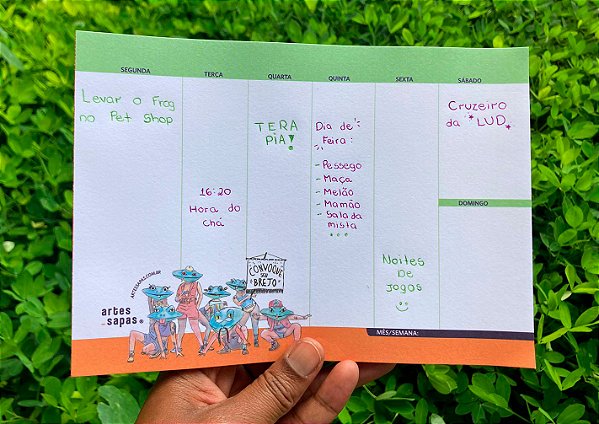 SEGUNDA
TERÇA
QUARTA
QUINTA
SEXTA
SÁBADO
Levar o Frog
no Pet Shop
16:20
Hora do
chá
TERA
PIA!
Dia de
Feira:
- Pessego
- Maça
- Melão
- Mamão
- Salada
mista
Noites
De
Jogos
Cruzeiro
da *LUD*
DOMINGO
MÊS/SEMANA:
ARTESAPAS.COM.BR
artes
sapas
CONVOQUE
SEU
BREJO